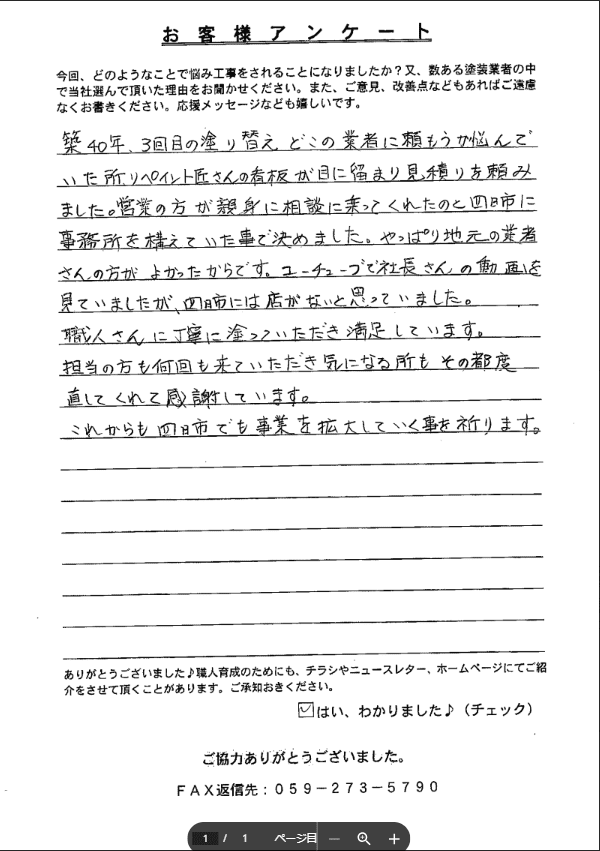 お客様アンケート
今回、どのようなことで悩み工事をされることになりましたか？又、数ある塗装業者の中
で当社選んで頂いた理由をお聞かせください。また、ご意見、改善点などもあればご遠慮
なくお書きください。応援メッセージなども嬉しいです。
築40年、3回目の塗り替え どこの業者に頼もうか悩んで
いた所リペイント匠さんの看板が目に留まり見積りを頼み
ました。営業の方が親身に相談に乗ってくれたのと四日市に
事務所を構えていた事で決めました。やっぱり地元の業者
さんの方がよかったからです。ユーチューブで社長さんの動画を
見ていましたが、四日市には店がないと思っていました。
職人さんに丁寧に塗っていただき満足しています。
担当の方も何回も来ていただき気になる所もその都度
直してくれて感謝しています。
これからも四日市でも事業を拡大していく事を祈ります。
ありがとうございました♪職人育成のためにも、チラシやニュースレター、ホームページにてご紹
介をさせて頂くことがあります。ご承知おきください。
☑はい、わかりました♪（チェック）
ご協力ありがとうございました。
ＦＡＸ返信先：０５９－２７３－５７９０
1 / 1 ページ目